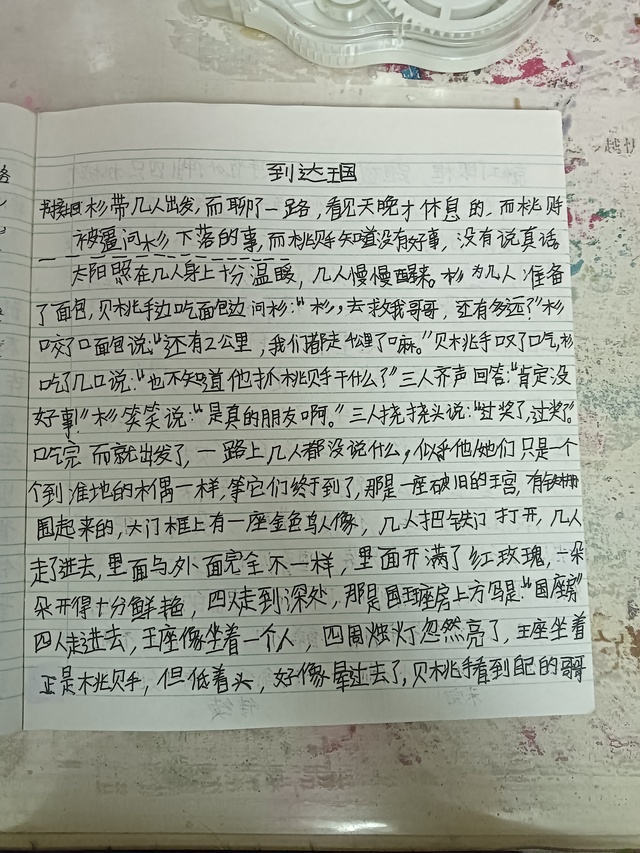 到达王国
前接回杉带几人出发，而聊了一路，看见天晚才休息的，而桃贝手
被逼问杉下落的事，而桃贝手知道没有好事，没有说真话
太阳照在几人身上十分温暖，几人慢慢醒来。杉为几人准备
了面包，贝桃手边吃面包边问杉："杉，去救我哥哥，还有多远？"杉
咬了口面包说："还有2公里，我们都走4公里了嘛。"贝桃手叹了口气，杉
吃了几口说："也不知道他抓桃贝手干什么？"三人齐声回答："肯定没
好事！"杉笑笑说："是真的朋友啊。"三人挠挠头说："过奖了，过奖了。"
吃完而就出发了，一路上几人都没说什么，似乎他/她们只是一个
个到准地的木偶一样，等它们终于到了，那是一座破旧的王宫，有铁栅
围起来的，大门框上有一座金色鸟人像，几人把铁门打开，几人
走了进去，里面与外面完全不一样，里面开满了红玫瑰，一朵
朵开得十分鲜艳，四人走到深处，那是国王座房上方写是："国座房"
四人走进去，王座像坐着一个人，四周烛灯忽然亮了，王座坐着
正是桃贝手，但低着头，好像晕过去了，贝桃手看到自己的哥哥